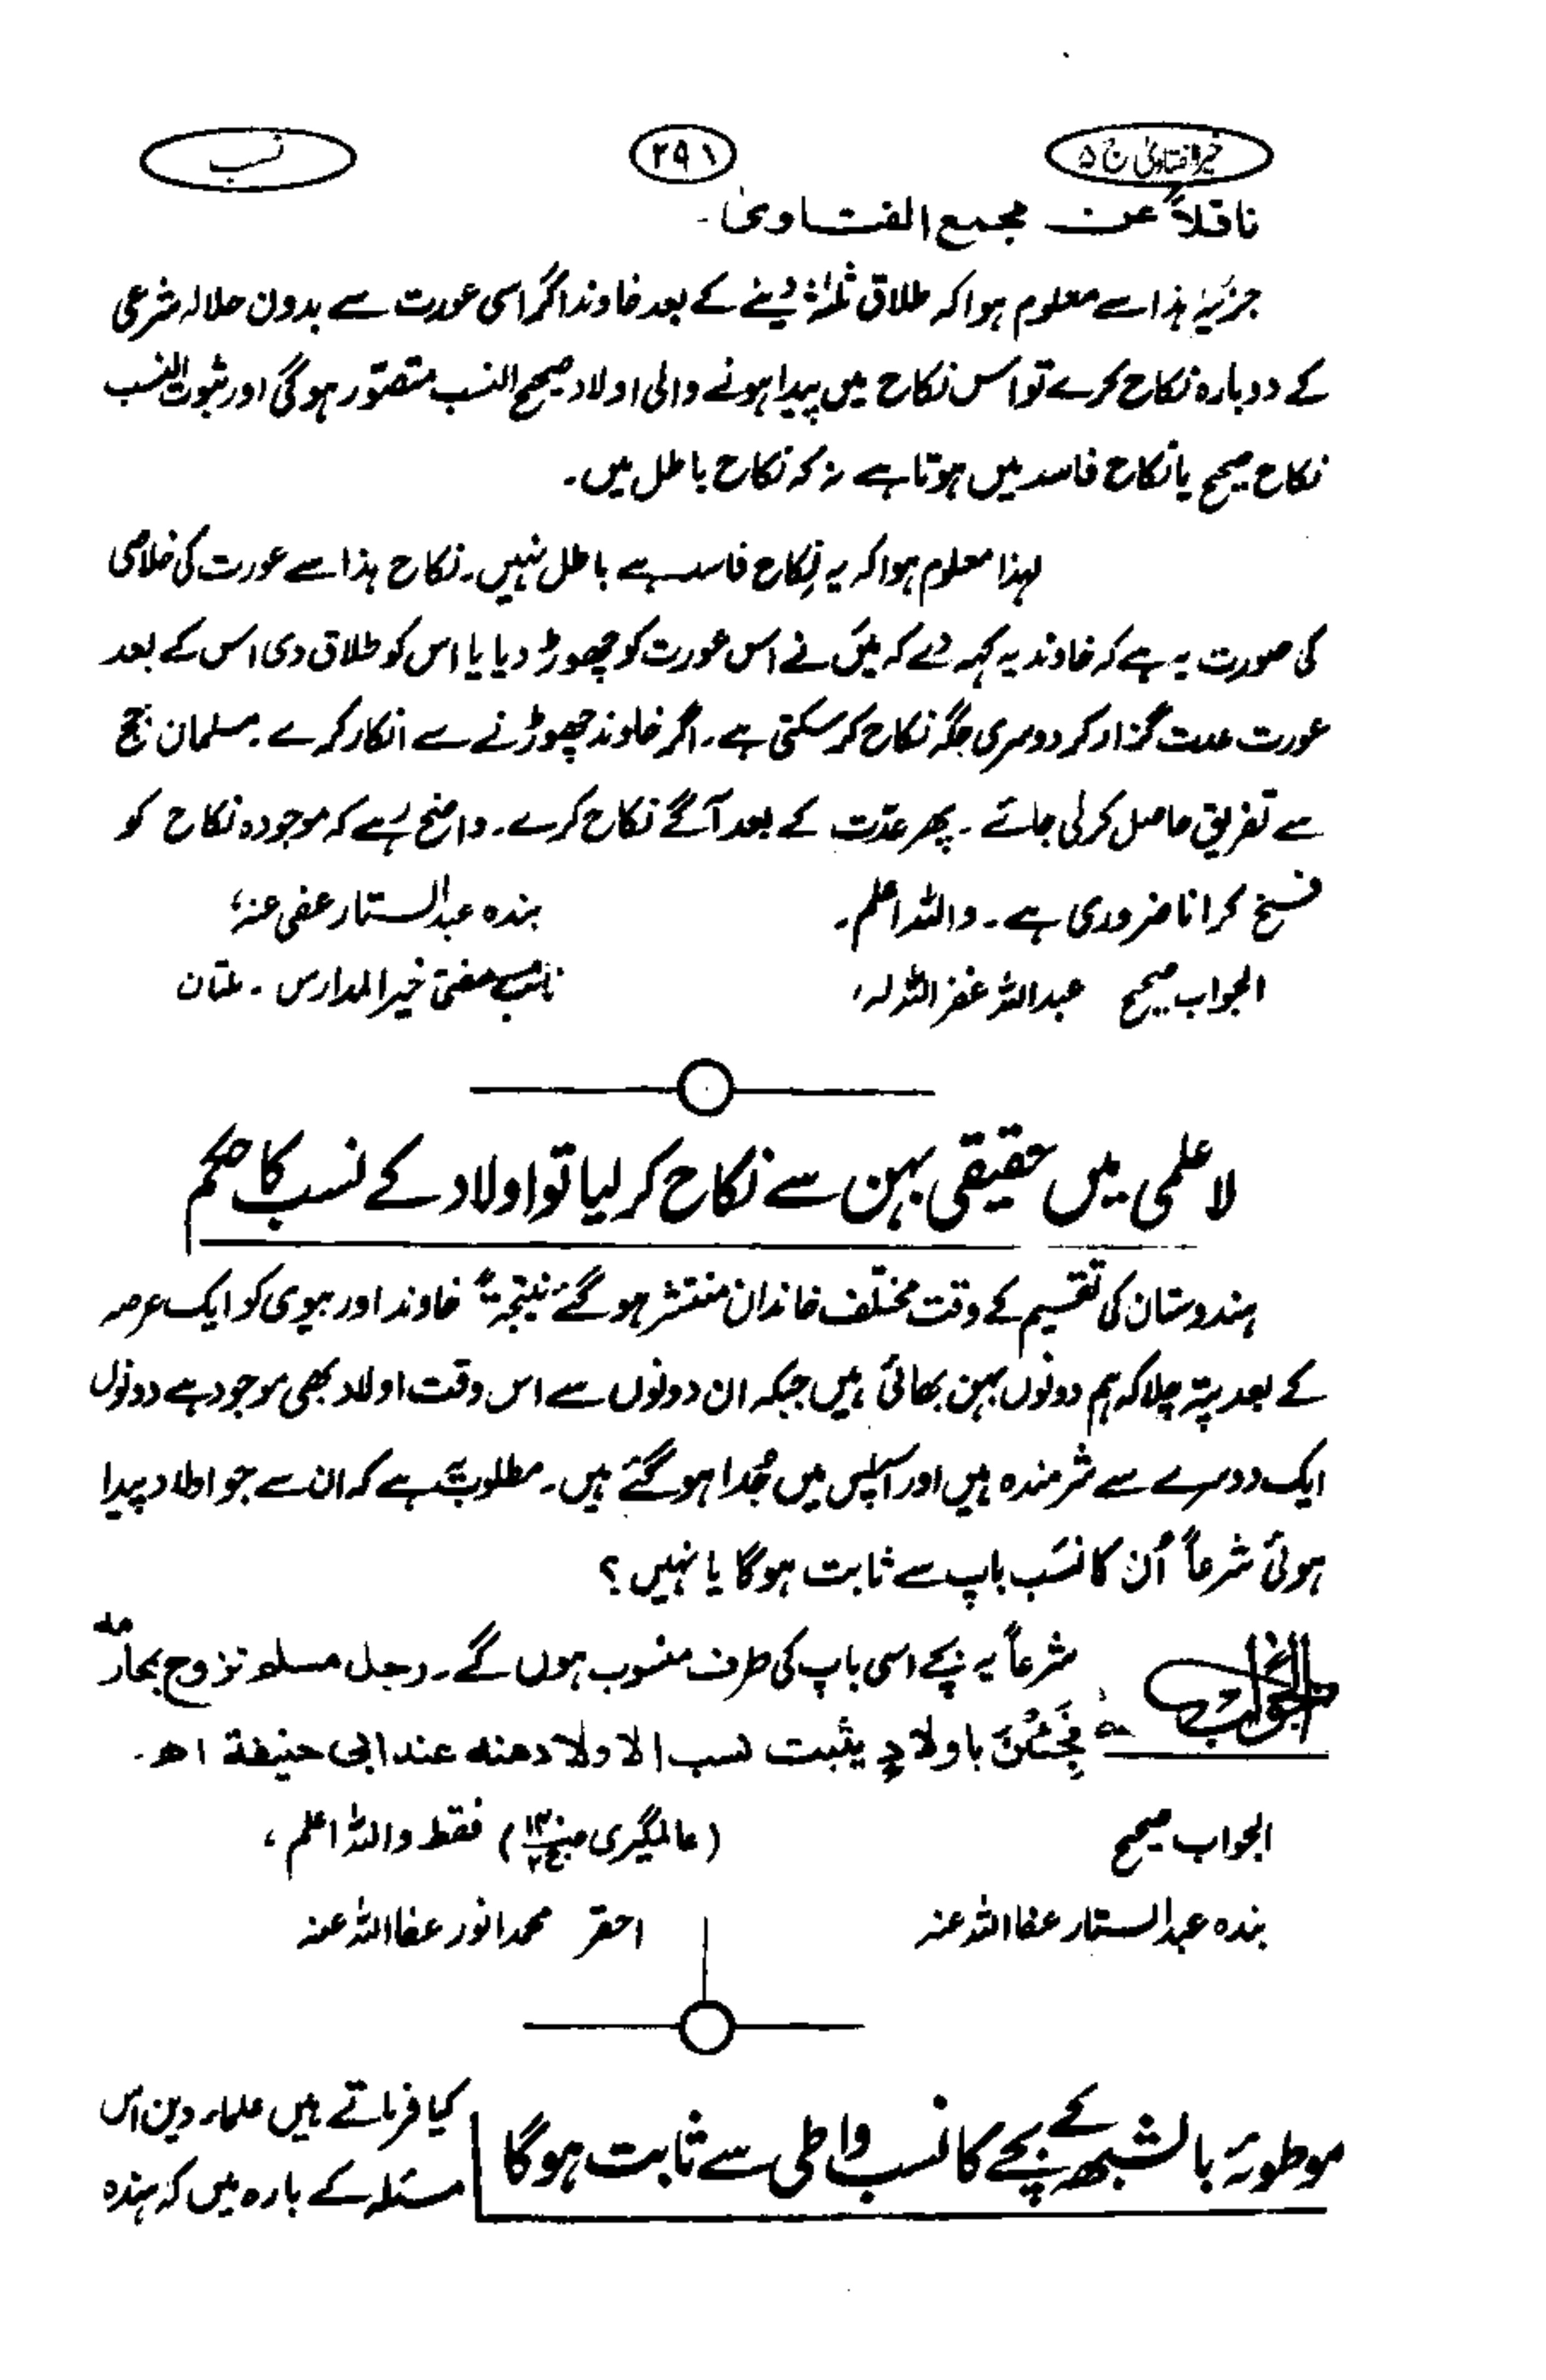 خیر الفتاویٰ ج ۵
۲۹۱
نسب
ناقلاً عن مجمع الفتاویٰ۔
جزئیہ ہذا سے معلوم ہوا کہ طلاق ثلٰثہ دینے کے بعد خاوند اگر اسی عورت سے بدون حلالہ شرعی
کے دوبارہ نکاح کرے تو اس نکاح میں پیدا ہونے والی اولاد صحیح النسب متصوّر ہوگی اور ثبوت النسب
نکاح صحیح یا نکاح فاسد میں ہوتا ہے نہ کہ نکاح باطل میں۔
لہذا معلوم ہوا کہ یہ نکاح فاسد ہے باطل نہیں۔ نکاح ہذا سے عورت کی خلاصی
کی صورت یہ ہے کہ خاوند یہ کہہ دے کہ میں نے اس عورت کو چھوڑ دیا یا اس کو طلاق دی اس کے بعد
عورت عدت گزار کر دوسری جگہ نکاح کر سکتی ہے۔ اگر خاوند چھوڑنے سے انکار کرے۔ مسلمان جج
سے تفریق حاصل کر لی جائے۔ پھر عدّت کے بعد آگے نکاح کرے۔ واضح رہے کہ موجودہ نکاح کو
فسخ کرانا ضروری ہے۔ واللہ اعلم۔
بندہ عبدالستار عفی عنہ،
الجواب صحیح عبداللہ غفر اللہ لہ،
نائب مفتی خیر المدارس۔ ملتان
لا علمی میں حقیقی بہن سے نکاح کر لیا تو اولاد کے نسب کا حکم
ہندوستان کی تقسیم کے وقت مختلف خاندان منتشر ہو گئے نتیجۃً خاوند اور بیوی کو ایک عرصہ
کے بعد پتہ چلا کہ ہم دونوں بہن بھائی ہیں جبکہ ان دونوں سے اس وقت اولاد بھی موجود ہے دونوں
ایک دوسرے سے شرمندہ ہیں اور آپس میں جُدا ہو گئے ہیں۔ مطلوب یہ ہے کہ ان سے جو اولاد پیدا
ہوئی شرعاً اُن کا نسَب باپ سے ثابت ہوگا یا نہیں؟
الجواب
شرعاً یہ بچے اسی باپ کی طرف منسوب ہوں گے۔ رجل مسلم تزوج بمحارمه
فجئن باولاد یثبت نسب الاولاد منه عند ابی حنیفة اھ۔
(عالمگیری) فقط واللہ اعلم،
الجواب صحیح
بندہ عبدالستار عفا اللہ عنہ
احقر محمد انور عفا اللہ عنہ
موطوئہ بالشبھہ کے بچے کا نسب واطی سے ثابت ہوگا
کیا فرماتے ہیں علماء دین اس
مسئلہ کے بارہ میں کہ ہندہ